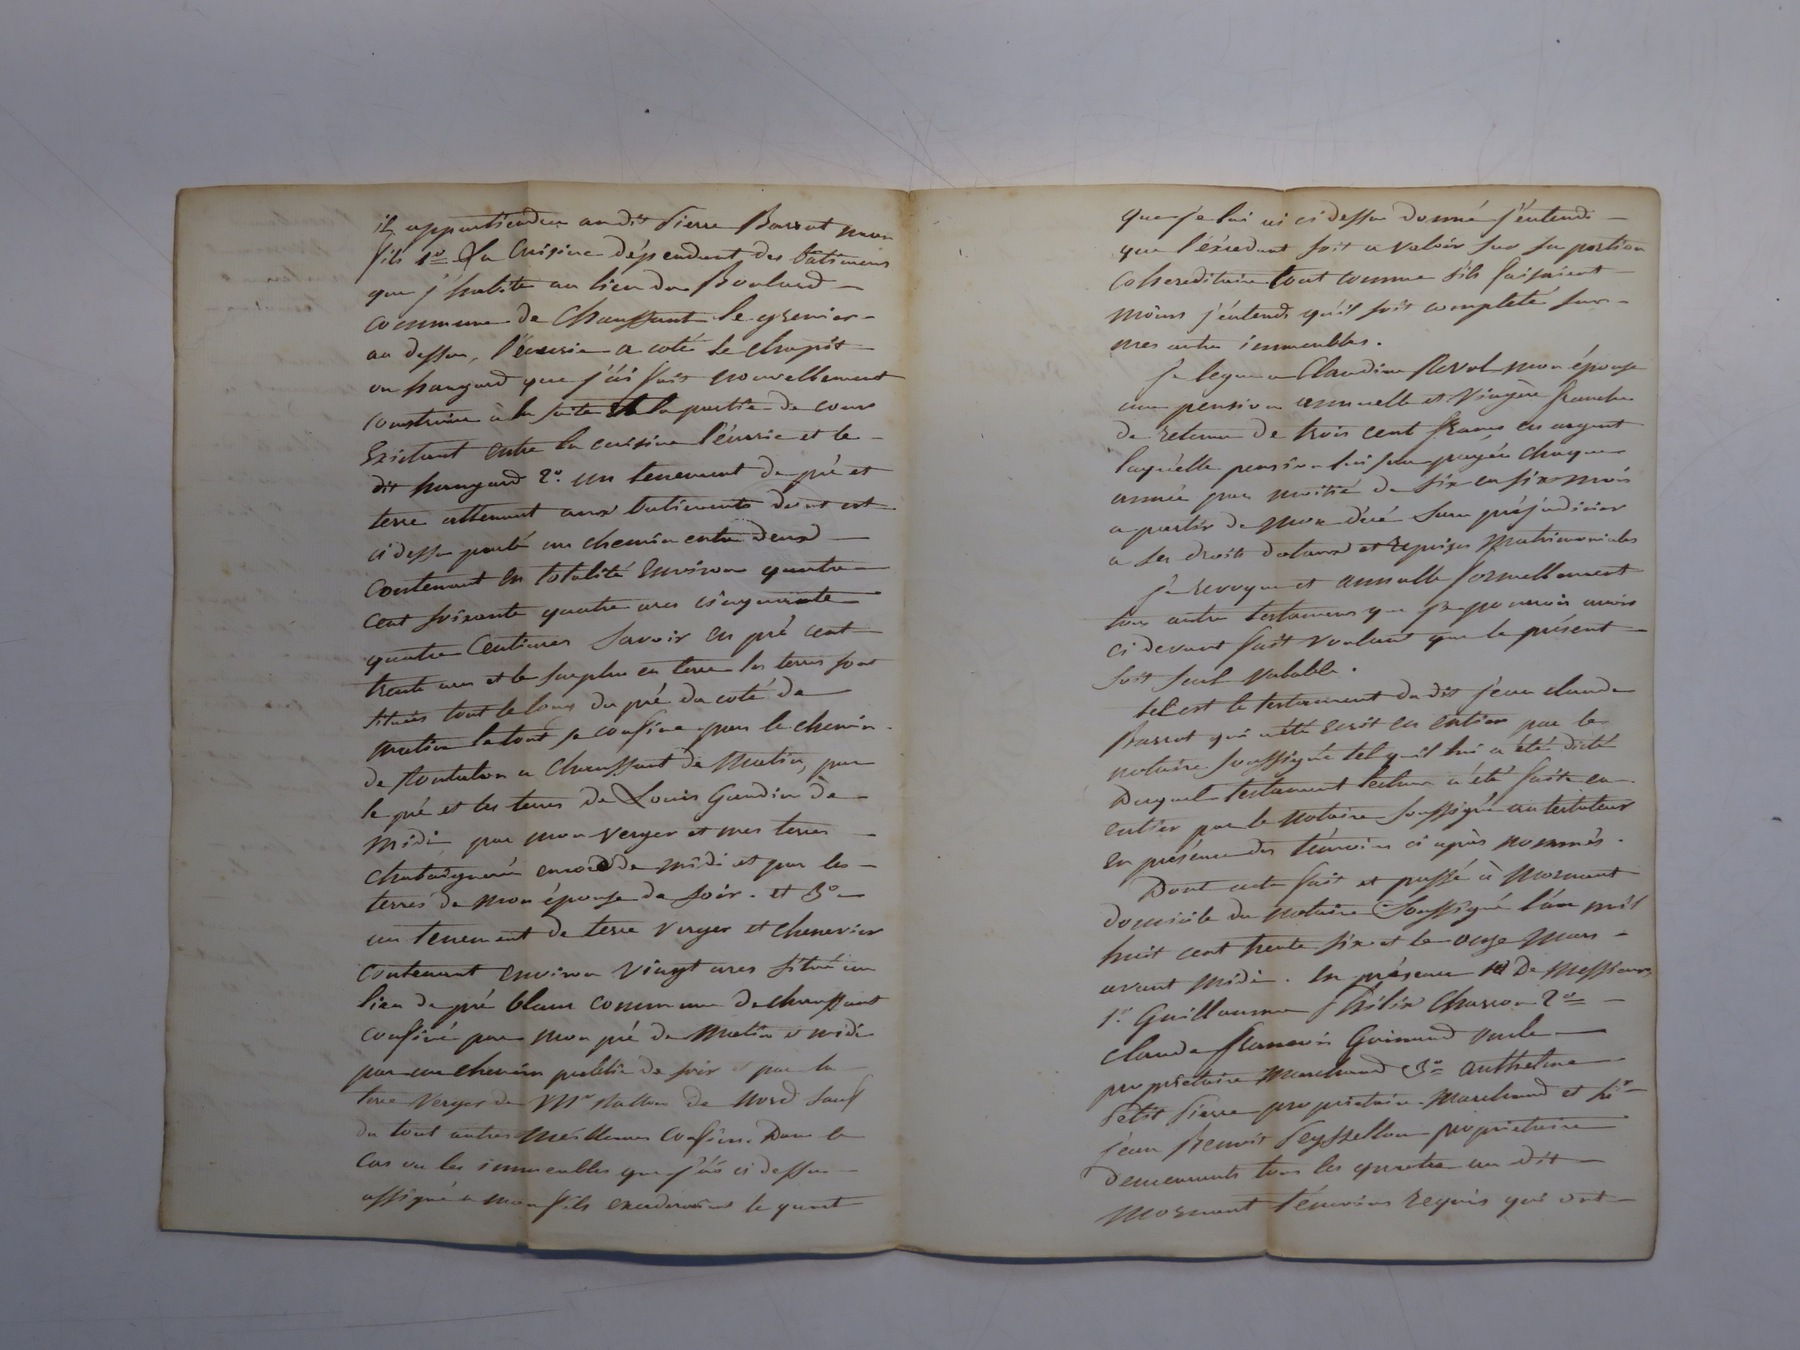 il appartiendra audit Pierre Barrot mon
fils 1º La Cuisine dépendant des batimens
que j'habite au lieu du Boulard
commune de Chaussant le grenier
au dessus, l'écurie a coté le chapit
ou hangard que j'ai fait nouvellement
construire à la suite et la partie de cour
Existant entre la cuisine l'écurie et le
dit hangard 2º. un tenement de pré et
terre attenant aux batiments dont est
ci dessus parlé un chemin entre deux
Contenant en totalité Environ quatre
cent soixante quatre ares cinquante
quatre Centiares Savoir en pré cent
trente ares et le surplus en terre les terres sont
Situées tout le long du pré du coté de
matin le tout se confine par le chemin
de a Chaussant de Matin, par
le pré et les terres de Louis Gaudin de
Midi par mon verger et mes terres
chataigneraie encore de midi et par les
terres de mon épouse de soir. et 3º
un tenement de terre verger et chenevier
Contenant environ vingt ares situé au
lieu de pré blanc commune de chaussant
confiné par mon pré de Matin et midi
par un chemin public de soir et par la
terre verger de Mr de Nord Sauf
du tout autres Meilleurs Confins. Dans le
Cas ou les immeubles que j'ai ci dessus
assigné a mon fils excederaient le quart
que je lui ai ci dessus donné j'entends
que l'éxcedant soit a valoir sur sa portion
cohereditaire tout comme s'ils faisaient
moins j'éntends qu'il soit completé sur
mes autre immeubles.
Je legue a Claudine Revol mon épouse
une pension annuelle et Viagère franche
de retenue de trois cent francs en argent
laquelle pension lui sera payée chaque
année par moitié de six en six mois
a partir de mon décé Sans préjudicier
a ses droits dotaux et reprises Matrimoniales
Je revoque et annulle formellement
tous autre testamens que je pourrois avoir
ci devant fait voulant que le présent
soit seul valable.
tel est le testament du dit jean claude
Barrot qui a été écrit en entier par le
notaire soussigné tel qu'il lui a été dicté
Duquel testament lecture a été faite en
entier par le notaire soussigné au testateur
en présence des témoins ci après nommés.
Dont acte fait et passé à Mornant
domicile du notaire soussigné l'an mil
huit cent trente six et le onze Mars
avant midi. En présence De Messieurs
1º. Guillaume Félix Charson 2º
Claude François Guinand oncle
propriétaire Marchand 3º Anthelme
Petit Pierre propriétaire Marchand et 4º
jean Benoit Peyssellon propriétaire
demeurants tous les quatre au dit
Mornant témoins requis qui ont